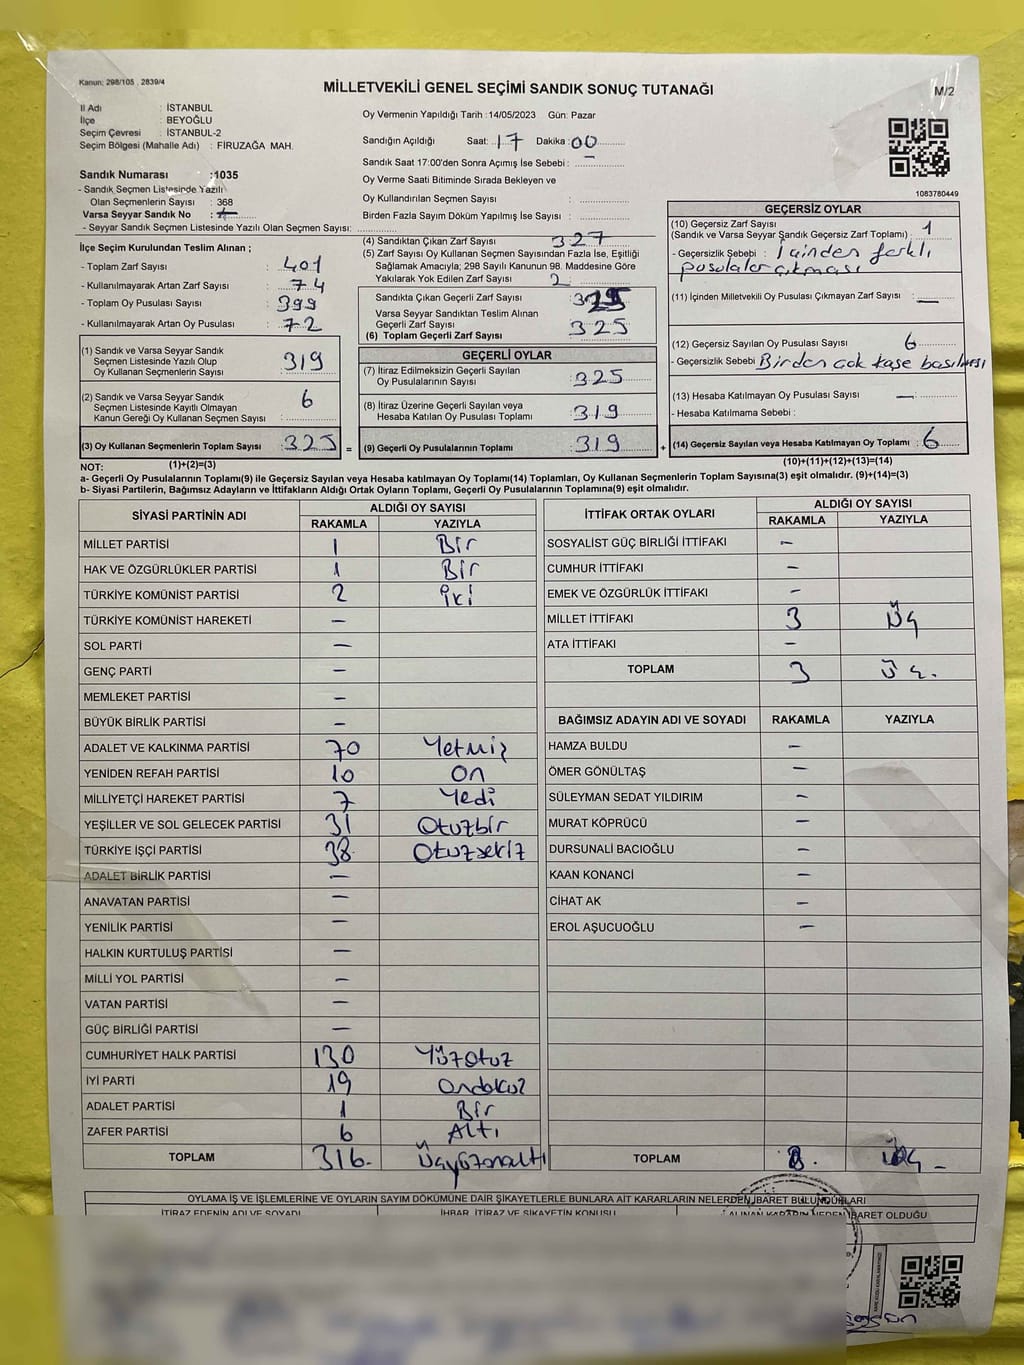 Kanun: 298/105 , 2839/4
MİLLETVEKİLİ GENEL SEÇİMİ SANDIK SONUÇ TUTANAĞI
M/2
İl Adı : İSTANBUL
İlçe : BEYOĞLU
Seçim Çevresi : İSTANBUL-2
Seçim Bölgesi (Mahalle Adı) : FİRUZAĞA MAH.
Sandık Numarası :1035
- Sandık Seçmen Listesinde Yazılı
Olan Seçmenlerin Sayısı : 368
Varsa Seyyar Sandık No :
- Seyyar Sandık Seçmen Listesinde Yazılı Olan Seçmen Sayısı:
Oy Vermenin Yapıldığı Tarih :14/05/2023 Gün: Pazar
Sandığın Açıldığı Saat: 17 Dakika : 00
Sandık Saat 17:00'den Sonra Açımış İse Sebebi : -
Oy Verme Saati Bitiminde Sırada Bekleyen ve
Oy Kullandırılan Seçmen Sayısı :
Birden Fazla Sayım Döküm Yapılmış İse Sayısı :
1083780449
İlçe Seçim Kurulundan Teslim Alınan ;
- Toplam Zarf Sayısı : 401
- Kullanılmayarak Artan Zarf Sayısı : 74
- Toplam Oy Pusulası Sayısı : 399
- Kullanılmayarak Artan Oy Pusulası : 72
(1) Sandık ve Varsa Seyyar Sandık
Seçmen Listesinde Yazılı Olup
Oy Kullanan Seçmenlerin Sayısı : 319
(2) Sandık ve Varsa Seyyar Sandık
Seçmen Listesinde Kayıtlı Olmayan
Kanun Gereği Oy Kullanan Seçmen Sayısı : 6
(3) Oy Kullanan Seçmenlerin Toplam Sayısı : 325 =
(4) Sandıktan Çıkan Zarf Sayısı 327
(5) Zarf Sayısı Oy Kullanan Seçmen Sayısından Fazla İse, Eşitliği
Sağlamak Amacıyla; 298 Sayılı Kanunun 98. Maddesine Göre
Yakılarak Yok Edilen Zarf Sayısı 2
Sandıkta Çıkan Geçerli Zarf Sayısı : 325
Varsa Seyyar Sandıktan Teslim Alınan
Geçerli Zarf Sayısı
(6) Toplam Geçerli Zarf Sayısı : 325
GEÇERLİ OYLAR
(7) İtiraz Edilmeksizin Geçerli Sayılan
Oy Pusulalarının Sayısı : 325
(8) İtiraz Üzerine Geçerli Sayılan veya
Hesaba Katılan Oy Pusulası Toplamı : 319
(9) Geçerli Oy Pusulalarının Toplamı : 319 +
GEÇERSİZ OYLAR
(10) Geçersiz Zarf Sayısı
(Sandık ve Varsa Seyyar Sandık Geçersiz Zarf Toplamı) : 1
- Geçersizlik Sebebi : İçinden farklı
pusulalar çıkması
(11) İçinden Milletvekili Oy Pusulası Çıkmayan Zarf Sayısı : -
(12) Geçersiz Sayılan Oy Pusulası Sayısı : 6
- Geçersizlik Sebebi : Birden çok kaşe basılması
(13) Hesaba Katılmayan Oy Pusulası Sayısı : -
- Hesaba Katılmama Sebebi :
(14) Geçersiz Sayılan veya Hesaba Katılmayan Oy Toplamı : 6
NOT: (1)+(2)=(3)
(10)+(11)+(12)+(13)=(14)
a- Geçerli Oy Pusulalarının Toplamı(9) ile Geçersiz Sayılan veya Hesaba Katılmayan Oy Toplamı(14) Toplamları, Oy Kullanan Seçmenlerin Toplam Sayısına(3) eşit olmalıdır. (9)+(14)=(3)
b- Siyasi Partilerin, Bağımsız Adayların ve İttifakların Aldığı Ortak Oyların Toplamı, Geçerli Oy Pusulalarının Toplamına(9) eşit olmalıdır.
SİYASİ PARTİNİN ADI ALDIĞI OY SAYISI
RAKAMLA YAZIYLA
MİLLET PARTİSİ 1 Bir
HAK VE ÖZGÜRLÜKLER PARTİSİ 1 Bir
TÜRKİYE KOMÜNİST PARTİSİ 2 iki
TÜRKİYE KOMÜNİST HAREKETİ -
SOL PARTİ -
GENÇ PARTİ -
MEMLEKET PARTİSİ -
BÜYÜK BİRLİK PARTİSİ -
ADALET VE KALKINMA PARTİSİ 70 Yetmiş
YENİDEN REFAH PARTİSİ 10 On
MİLLİYETÇİ HAREKET PARTİSİ 7 Yedi
YEŞİLLER VE SOL GELECEK PARTİSİ 31 Otuzbir
TÜRKİYE İŞÇİ PARTİSİ 38 Otuzsekiz
ADALET BİRLİK PARTİSİ -
ANAVATAN PARTİSİ -
YENİLİK PARTİSİ -
HALKIN KURTULUŞ PARTİSİ -
MİLLİ YOL PARTİSİ -
VATAN PARTİSİ -
GÜÇ BİRLİĞİ PARTİSİ -
CUMHURİYET HALK PARTİSİ 130 Yüzotuz
İYİ PARTİ 19 Ondokuz
ADALET PARTİSİ 1 Bir
ZAFER PARTİSİ 6 Altı
TOPLAM 316 Üçyüzonaltı
İTTİFAK ORTAK OYLARI ALDIĞI OY SAYISI
RAKAMLA YAZIYLA
SOSYALİST GÜÇ BİRLİĞİ İTTİFAKI -
CUMHUR İTTİFAKI -
EMEK VE ÖZGÜRLÜK İTTİFAKI -
MİLLET İTTİFAKI 3 Üç
ATA İTTİFAKI -
TOPLAM 3 Üç.
BAĞIMSIZ ADAYIN ADI VE SOYADI RAKAMLA YAZIYLA
HAMZA BULDU -
ÖMER GÖNÜLTAŞ -
SÜLEYMAN SEDAT YILDIRIM -
MURAT KÖPRÜCÜ -
DURSUNALİ BACIOĞLU -
KAAN KONANCİ -
CİHAT AK -
EROL AŞUCUOĞLU -
TOPLAM
OYLAMA İŞ VE İŞLEMLERİNE VE OYLARIN SAYIM DÖKÜMÜNE DAİR ŞİKAYETLERLE BUNLARA AİT KARARLARIN NELERDEN İBARET BULUNDUKLARI
İTİRAZ EDENİN ADI VE SOYADI İHBAR, İTİRAZ VE ŞİKAYETİN KONUSU ALINAN KARARIN NEDEN İBARET OLDUĞU